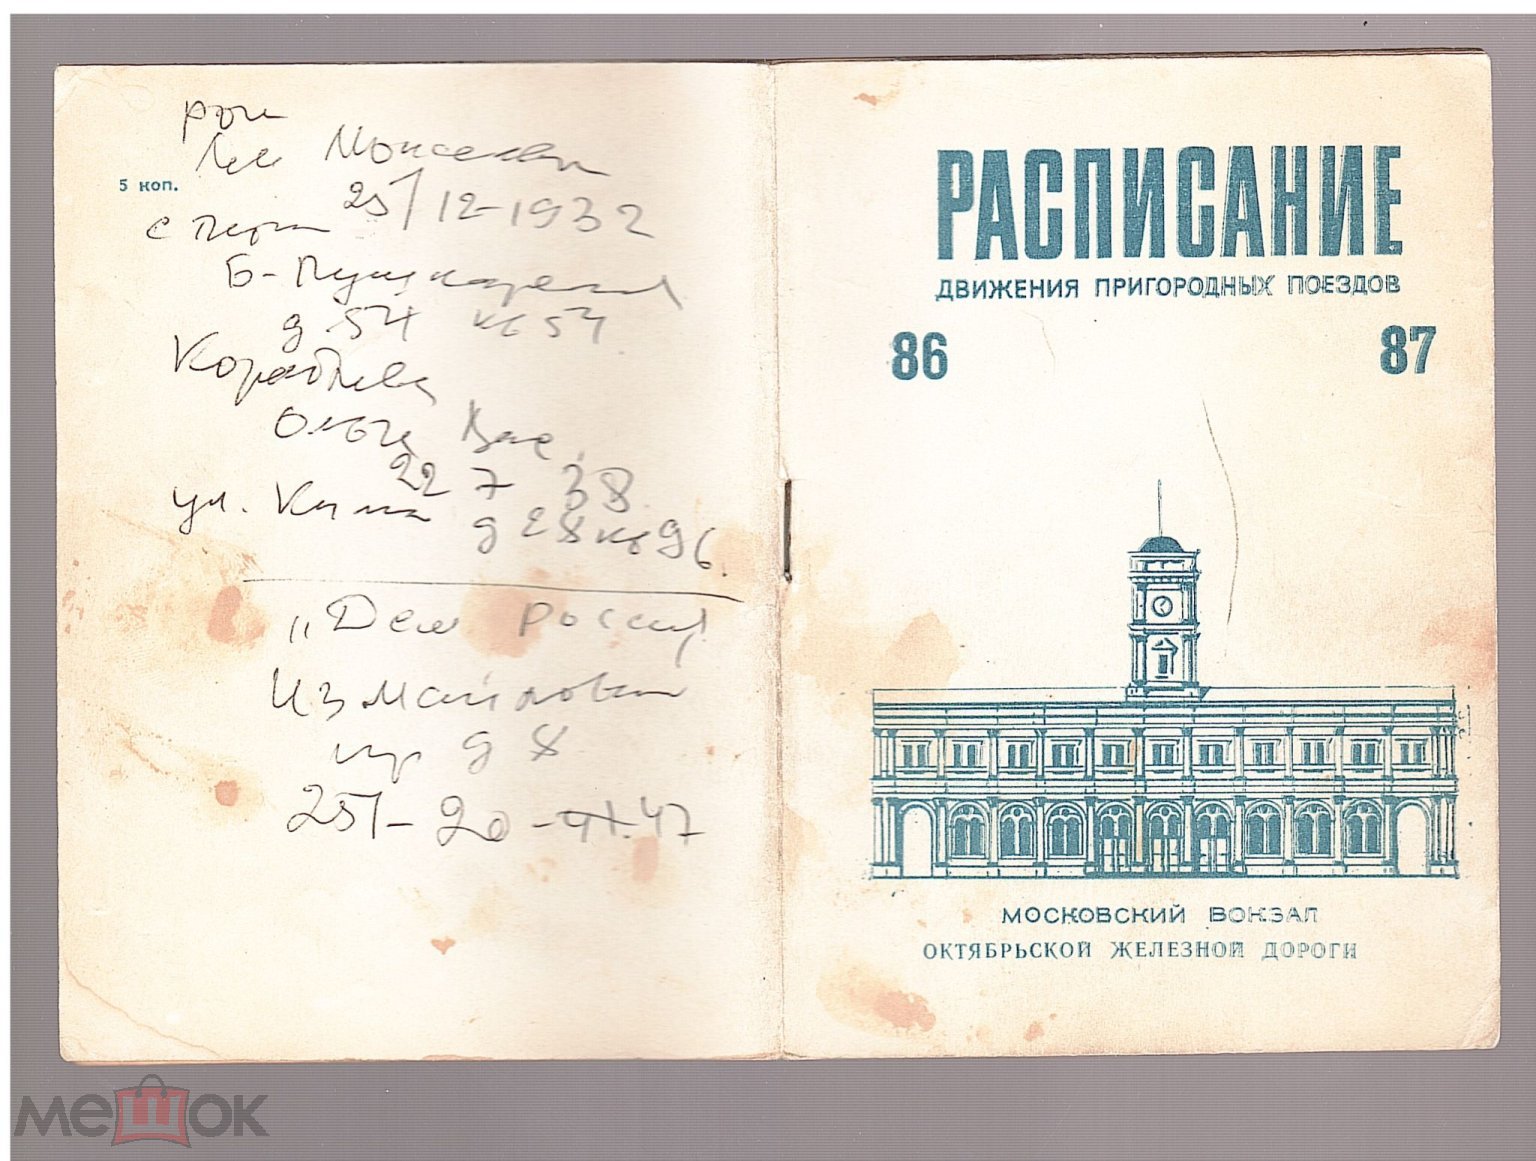 5 коп.
25/12-1932
Б-Пушкарская
д 54 кв 54
Кораблева
Ольга Вас.
22 7 38
ул. Кима д 28 кв 96.
"Дем Россия
Измайловский
пр д 8
251-20-47
РАСПИСАНИЕ
ДВИЖЕНИЯ ПРИГОРОДНЫХ ПОЕЗДОВ
86 87
МОСКОВСКИЙ ВОКЗАЛ
ОКТЯБРЬСКОЙ ЖЕЛЕЗНОЙ ДОРОГИ
мешок